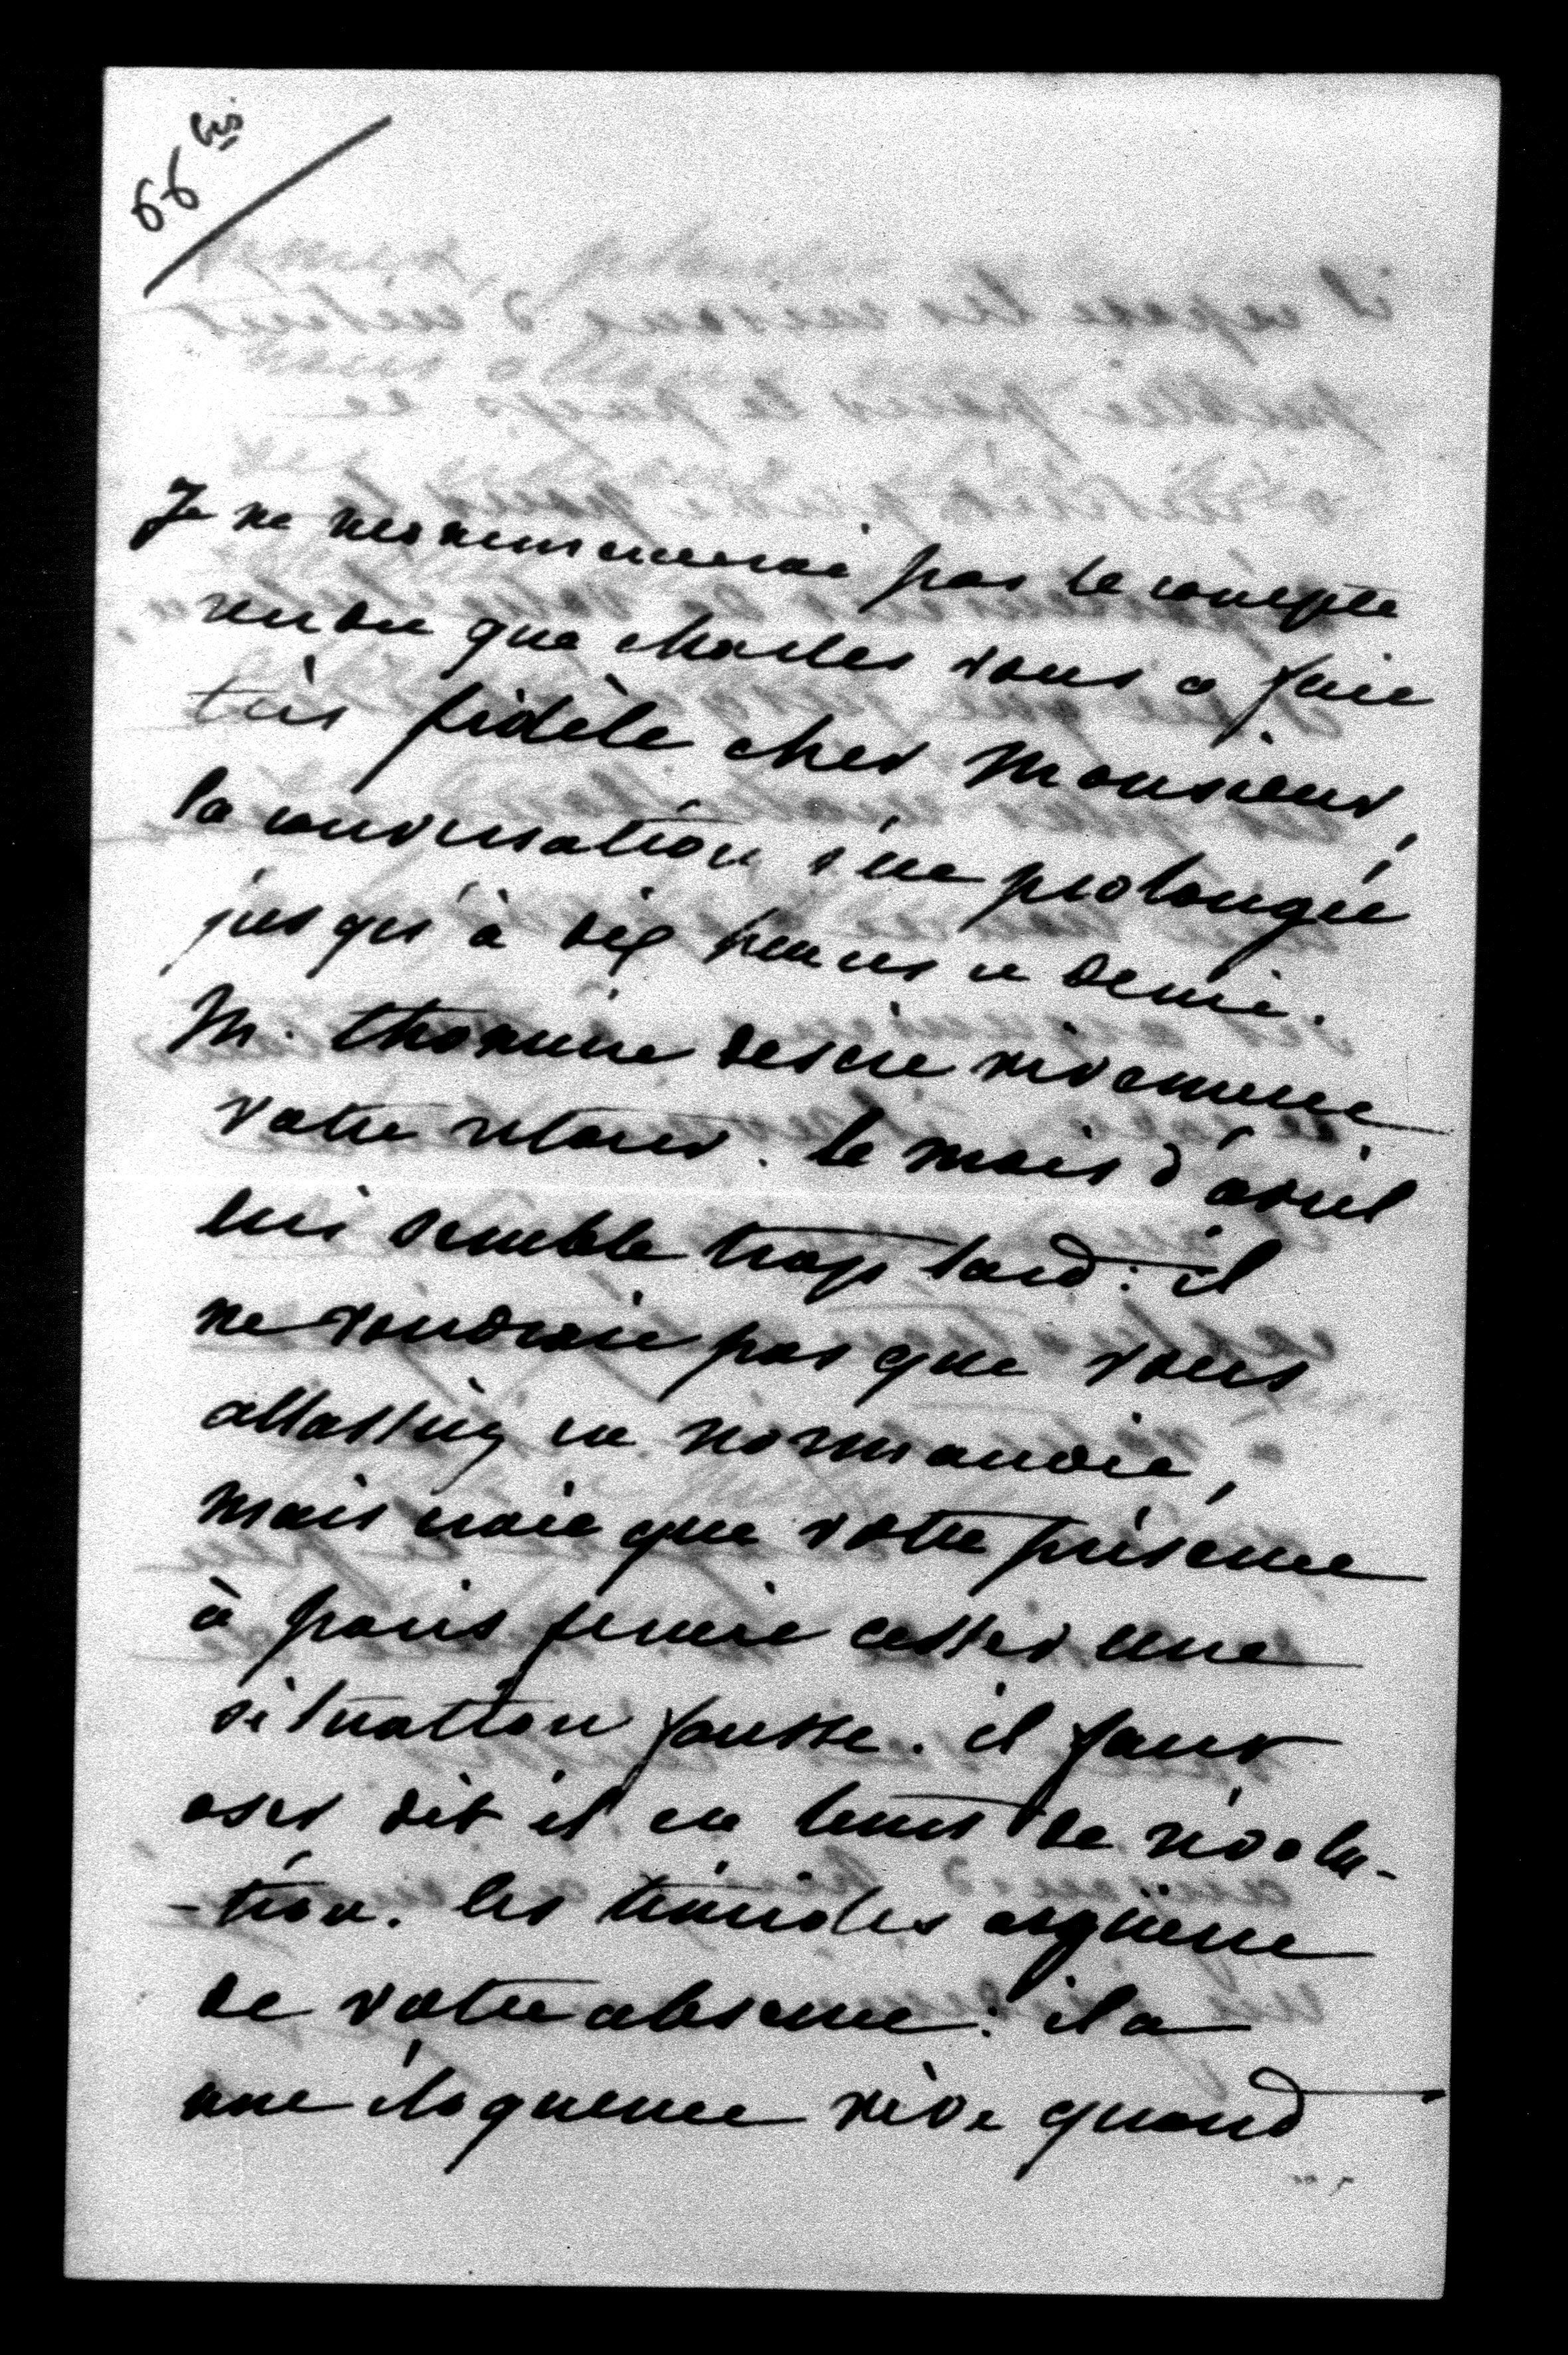 66 bis
Je ne recommencerai pas le compte
rendu que charles vous a fait
très fidèle cher Monsieur,
la conversation s'est prolongée
jusqu'à dix heures et demie.
M. thomine desire vivement
votre retour. le mois d'avril
lui semble trop tard : il
ne voudrait pas que vous
allassiez en normandie,
mais croit que votre présence
à paris feroit cesser une
situation fausse. il faut
oser dit il en tems de révolu-
-tion. les timides arguent
de votre absence : il a
une éloquence vive quand